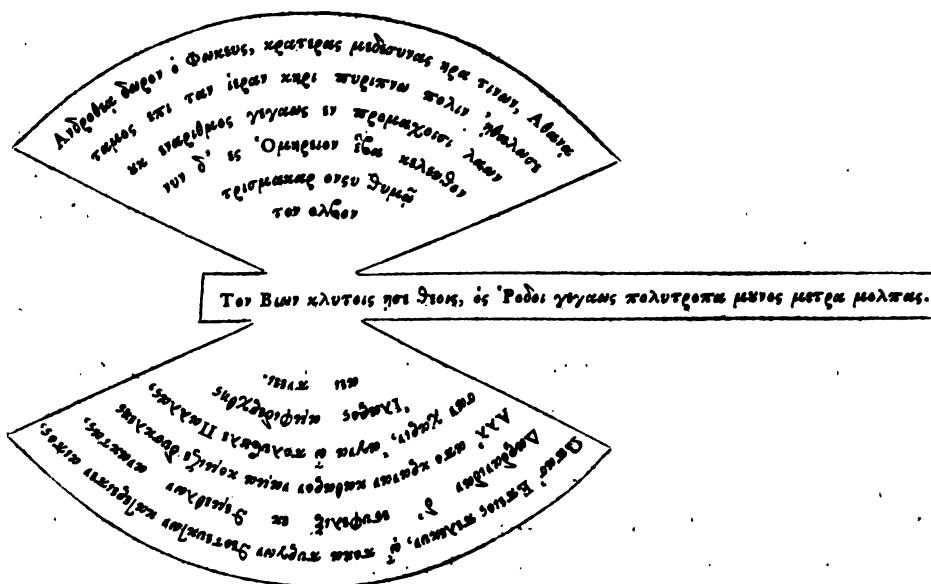 Ανδροθεᾳ δωρον ὁ Φωκευς, κρατερας μεδοσυνας ηρα τινων, Αθανᾳ
ταμος επι ταν ιεραν κηρι πυριπνω πολιν ηθαλωσε
ȣκ εναριθμος γεγαως εν προμαχοισι λαων
νυν δ᾽ ες Ὁμηρειον εβα κελευθον
τρισμακαρ ονσυ θυμῷ
τον ολβον
Τον Βιων κλυτοις ησε θεοις, ὁς Ῥοδοι γεγαως πολυτροπα μȣνος μετρα μολπας.
Ωπασ᾽ Επειος πελεκυν, ᾧ ποκα πυργων θεοτευκτων κατερειπεν αιπος,
Δαρδανιδαν δ᾽ εστυφελιξ εκ θεμεθλων ανακτας,
Αλλ᾽ απο κραναν καθαρον ναμα κομιζε δυσκλεης
σαν χαριν, ἁγνα ῶ πολυβȣλε Παλλας,
Ἱλαος αμφιδερχθης
αει πνεει.